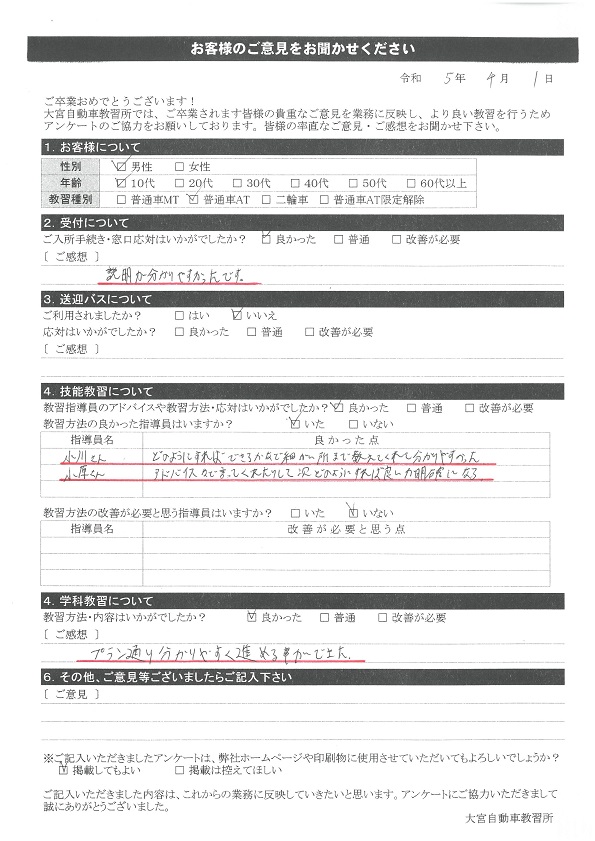 お客様のご意見をお聞かせください
令和 5年 4月 1日
ご卒業おめでとうございます！
大宮自動車教習所では、ご卒業されます皆様の貴重なご意見を業務に反映し、より良い教習を行うため
アンケートのご協力をお願いしております。皆様の率直なご意見・ご感想をお聞かせ下さい。
1. お客様について
性別 ☑男性 □女性
年齢 ☑10代 □20代 □30代 □40代 □50代 □60代以上
教習種別 □普通車MT ☑普通車AT □二輪車 □普通車AT限定解除
2. 受付について
ご入所手続き・窓口応対はいかがでしたか？ ☑良かった □普通 □改善が必要
［ ご感想 ］
説明が分かりやすかったです。
3. 送迎バスについて
ご利用されましたか？ □はい ☑いいえ
応対はいかがでしたか？ □良かった □普通 □改善が必要
［ ご感想 ］
4. 技能教習について
教習指導員のアドバイスや教習方法・応対はいかがでしたか？ ☑良かった □普通 □改善が必要
教習方法の良かった指導員はいますか？ ☑いた □いない
指導員名 良かった点
小川さん どのようにすればできるかなど細かい所まで教えてくれて分かりやすかった
さん アドバイスくれたりして次どのようにすれば良いか明確になる
教習方法の改善が必要と思う指導員はいますか？ □いた ☑いない
指導員名 改善が必要と思う点
4. 学科教習について
教習方法・内容はいかがでしたか？ ☑良かった □普通 □改善が必要
［ ご感想 ］
プラン通り分かりやすく進める事ができた.
6. その他、ご意見等ございましたらご記入下さい
［ ご意見 ］
※ご記入いただきましたアンケートは、弊社ホームページや印刷物に使用させていただいてもよろしいでしょうか？
☑掲載してもよい □掲載は控えてほしい
ご記入いただきました内容は、これからの業務に反映していきたいと思います。アンケートにご協力いただきまして
誠にありがとうございました。
大宮自動車教習所